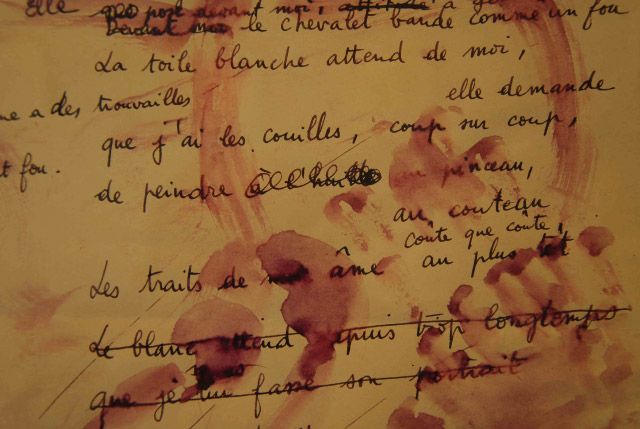 Elle pose devant moi,
Devant moi le chevalet bande comme un fou
La toile blanche attend de moi,
elle demande
me a des trouvailles
que j'ai les couilles, coup sur coup,
t fou.
de peindre au pinceau,
au couteau
coûte que coûte,
Les traits de âme au plus tôt
Le blanc attend depuis trop longtemps
que je lui fasse son portrait